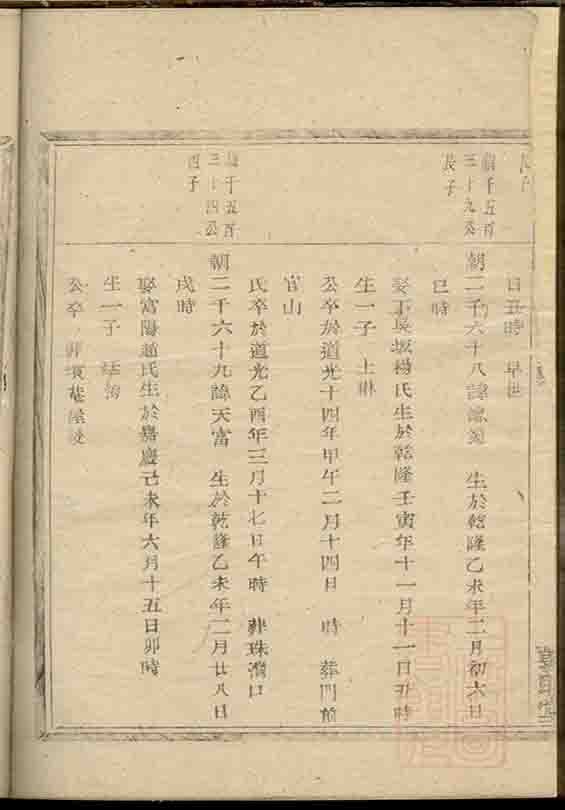 長子
日丑時 早世
朝千五百
三十九公
長子
朝二千六十八諱 生於乾隆乙未年二月初六日
巳時
娶下吳坂楊氏生於乾隆壬寅年十一月十一日丑時
生一子 士琳
公卒於道光十四年甲午二月十四日 時 葬門前
官山
氏卒於道光乙酉年三月十七日午時 葬珠灣口
朝千五百
三十四公
四子
朝二千六十九諱天富 生於乾隆乙未年二月廿八日
戌時
娶富陽趙氏生於嘉慶己未年六月十五日卯時
生一子
公卒 葬 菴屋後